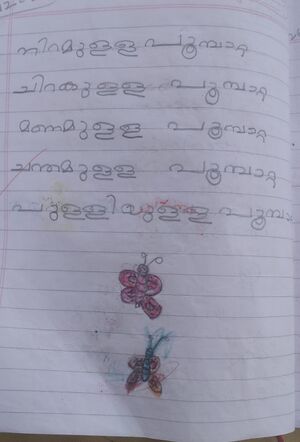 നിറമുള്ള പൂമ്പാറ്റ
ചിറകുള്ള പൂമ്പാറ്റ
മണമുള്ള പൂമ്പാറ്റ
ചന്തമുള്ള പൂമ്പാറ്റ
പുള്ളിയുള്ള പൂമ്പാറ്റ